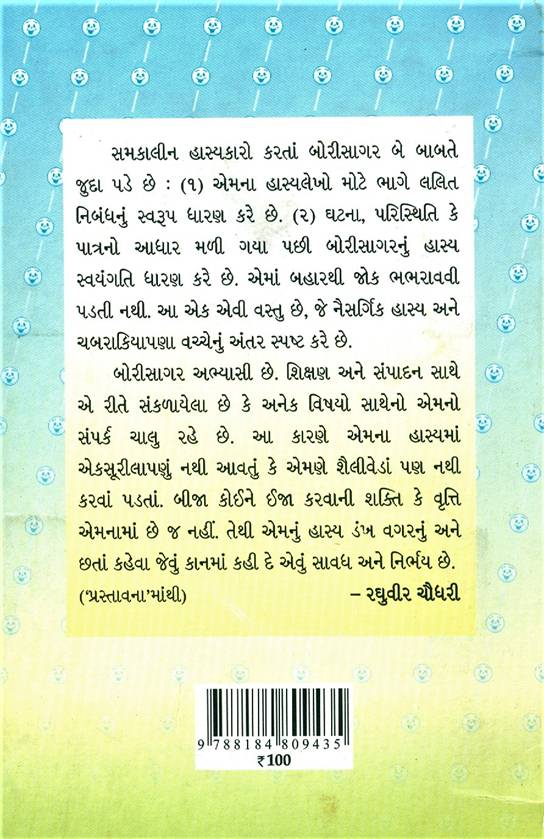 સમકાલીન હાસ્યકારો કરતાં બોરીસાગર બે બાબતે
જુદા પડે છે : (૧) એમના હાસ્યલેખો મોટે ભાગે લલિત
નિબંધનું સ્વરૂપ ધારણ કરે છે. (૨) ઘટના, પરિસ્થિતિ કે
પાત્રનો આધાર મળી ગયા પછી બોરીસાગરનું હાસ્ય
સ્વયંગતિ ધારણ કરે છે. એમાં બહારથી જોક ભભરાવવી
પડતી નથી. આ એક એવી વસ્તુ છે, જે નૈસર્ગિક હાસ્ય અને
ચબરાકિયાપણા વચ્ચેનું અંતર સ્પષ્ટ કરે છે.
બોરીસાગર અભ્યાસી છે. શિક્ષણ અને સંપાદન સાથે
એ રીતે સંકળાયેલા છે કે અનેક વિષયો સાથેનો એમનો
સંપર્ક ચાલુ રહે છે. આ કારણે એમના હાસ્યમાં
એકસૂરીલાપણું નથી આવતું કે એમણે શૈલીવેડાં પણ નથી
કરવાં પડતાં. બીજા કોઈને ઈજા કરવાની શક્તિ કે વૃત્તિ
એમનામાં છે જ નહીં. તેથી એમનું હાસ્ય ડંખ વગરનું અને
છતાં કહેવા જેવું કાનમાં કહી દે એવું સાવધ અને નિર્ભય છે.
(‘પ્રસ્તાવના’માંથી) – રઘુવીર ચૌધરી
9 788184 809435
₹ 100